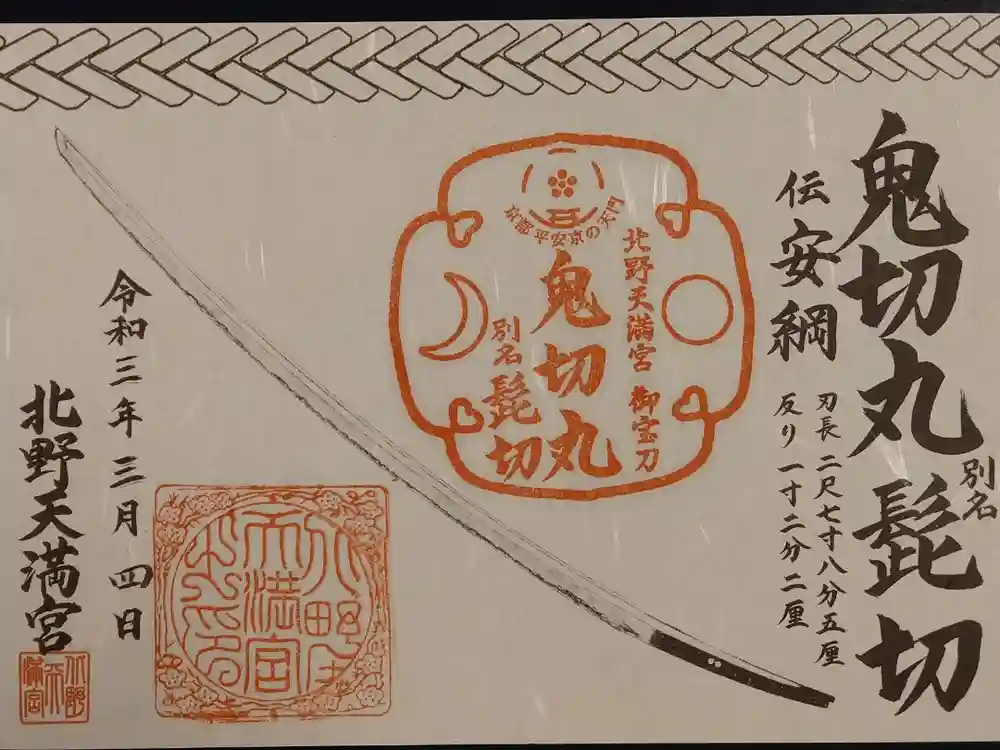 鬼切丸 別名 髭切
伝 安綱
刃長 二尺七寸八分五厘
反り 一寸二分二厘
京都 平安京の天門
北野天満宮 御宝刀
鬼切丸
別名 髭切
令和三年三月四日
北野天満宮
北野
天
満宮